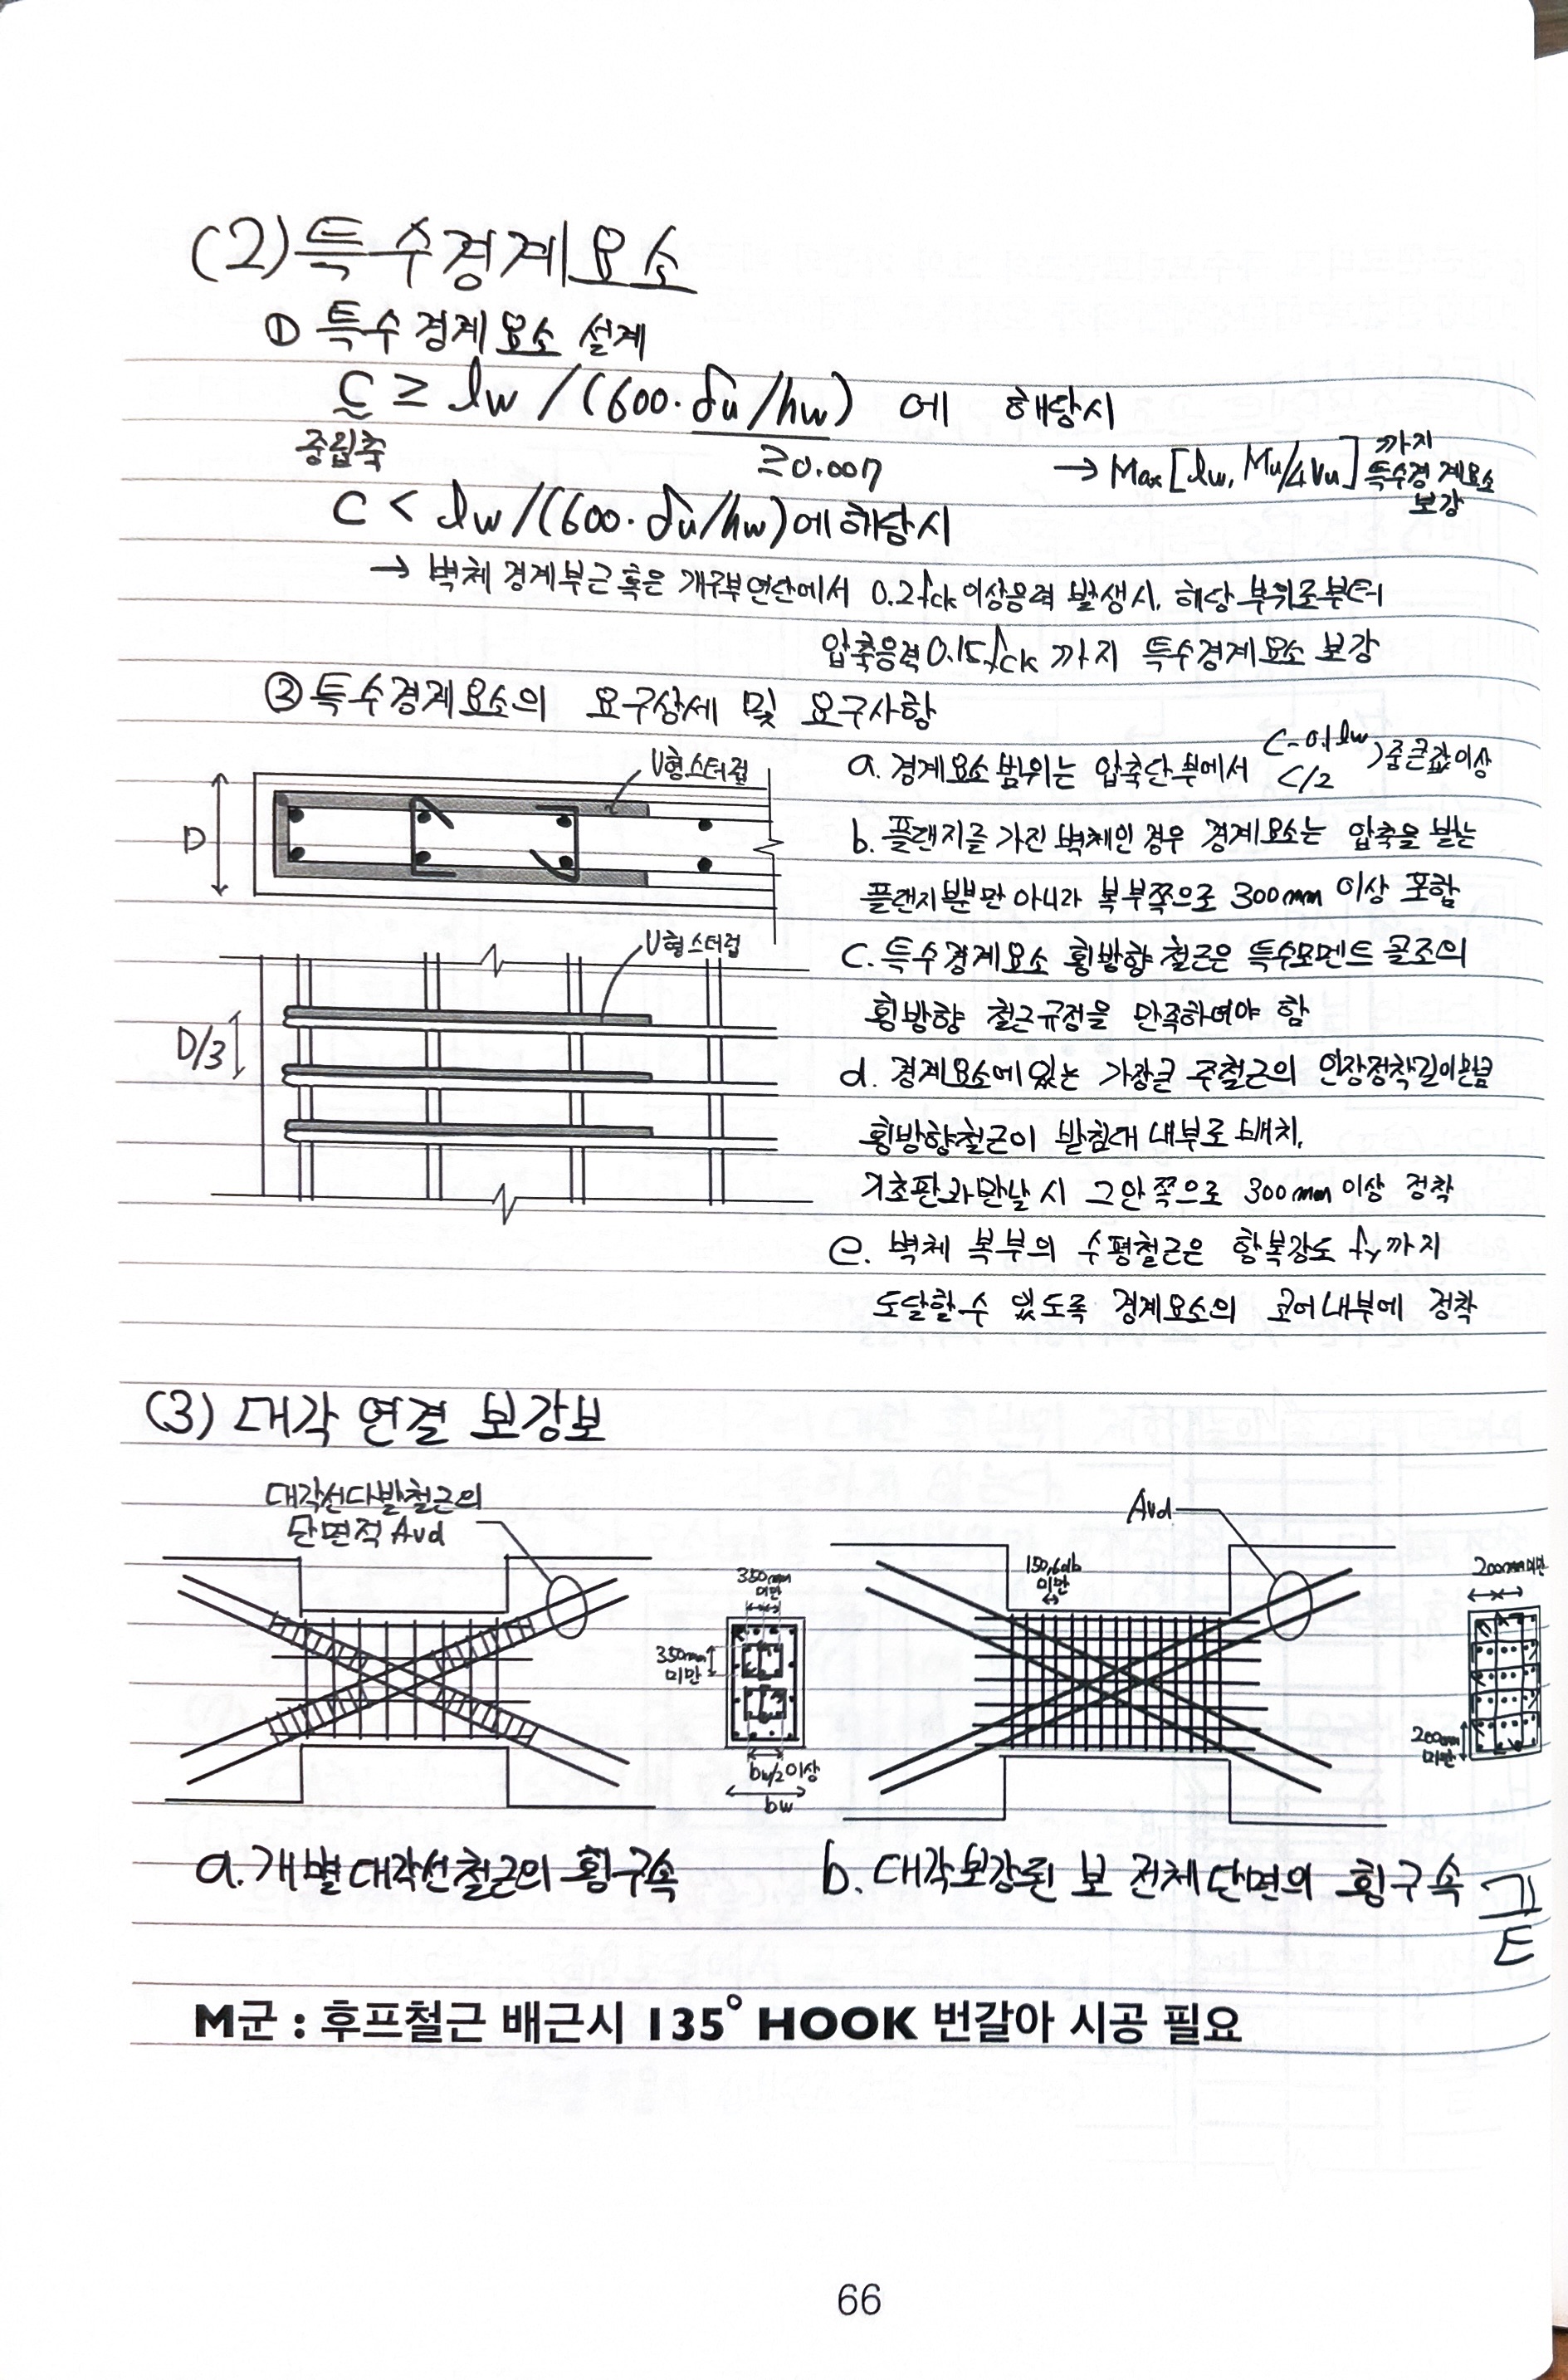 (2) 특수경계요소
① 특수경계요소 설계
C ≥ lw / (600·δu/hw) 에 해당시
중립축
≥0.007
→ Max [lw, Mu/4Vu] 까지 특수경계요소 보강
C < lw / (600·δu/hw)에 해당시
→ 벽체 경계부근 혹은 개구부 연단에서 0.2fck 이상응력 발생시, 해당 부위로부터
압축응력 0.15fck 까지 특수경계요소 보강
② 특수경계요소의 요구상세 및 요구사항
U형스터럽
D
U형스터럽
D/3
a. 경계요소 범위는 압축단부에서 C-0.1lw, C/2 중 큰값 이상
b. 플랜지를 가진 벽체인 경우 경계요소는 압축을 받는
플랜지 뿐만 아니라 복부쪽으로 300mm 이상 포함
C. 특수경계요소 횡방향 철근은 특수모멘트 골조의
횡방향 철근규정을 만족하여야 함
d. 경계요소에 있는 가장큰 주철근의 인장정착길이만큼
횡방향철근이 받침대 내부로 배치,
기초판과 만날 시 그 안쪽으로 300mm 이상 정착
e. 벽체 복부의 수평철근은 항복강도 fy까지
도달할 수 있도록 경계요소의 코어내부에 정착
(3) 대각 연결 보강보
대각선다발철근의
단면적 Avd
350mm
미만
350mm
미만
bw/2 이상
bw
Avd
150, 6db
미만
200mm미만
200mm
미만
a. 개별 대각선철근의 횡구속
b. 대각보강된 보 전체단면의 횡구속 끝
M군 : 후프철근 배근시 135° HOOK 번갈아 시공 필요
66